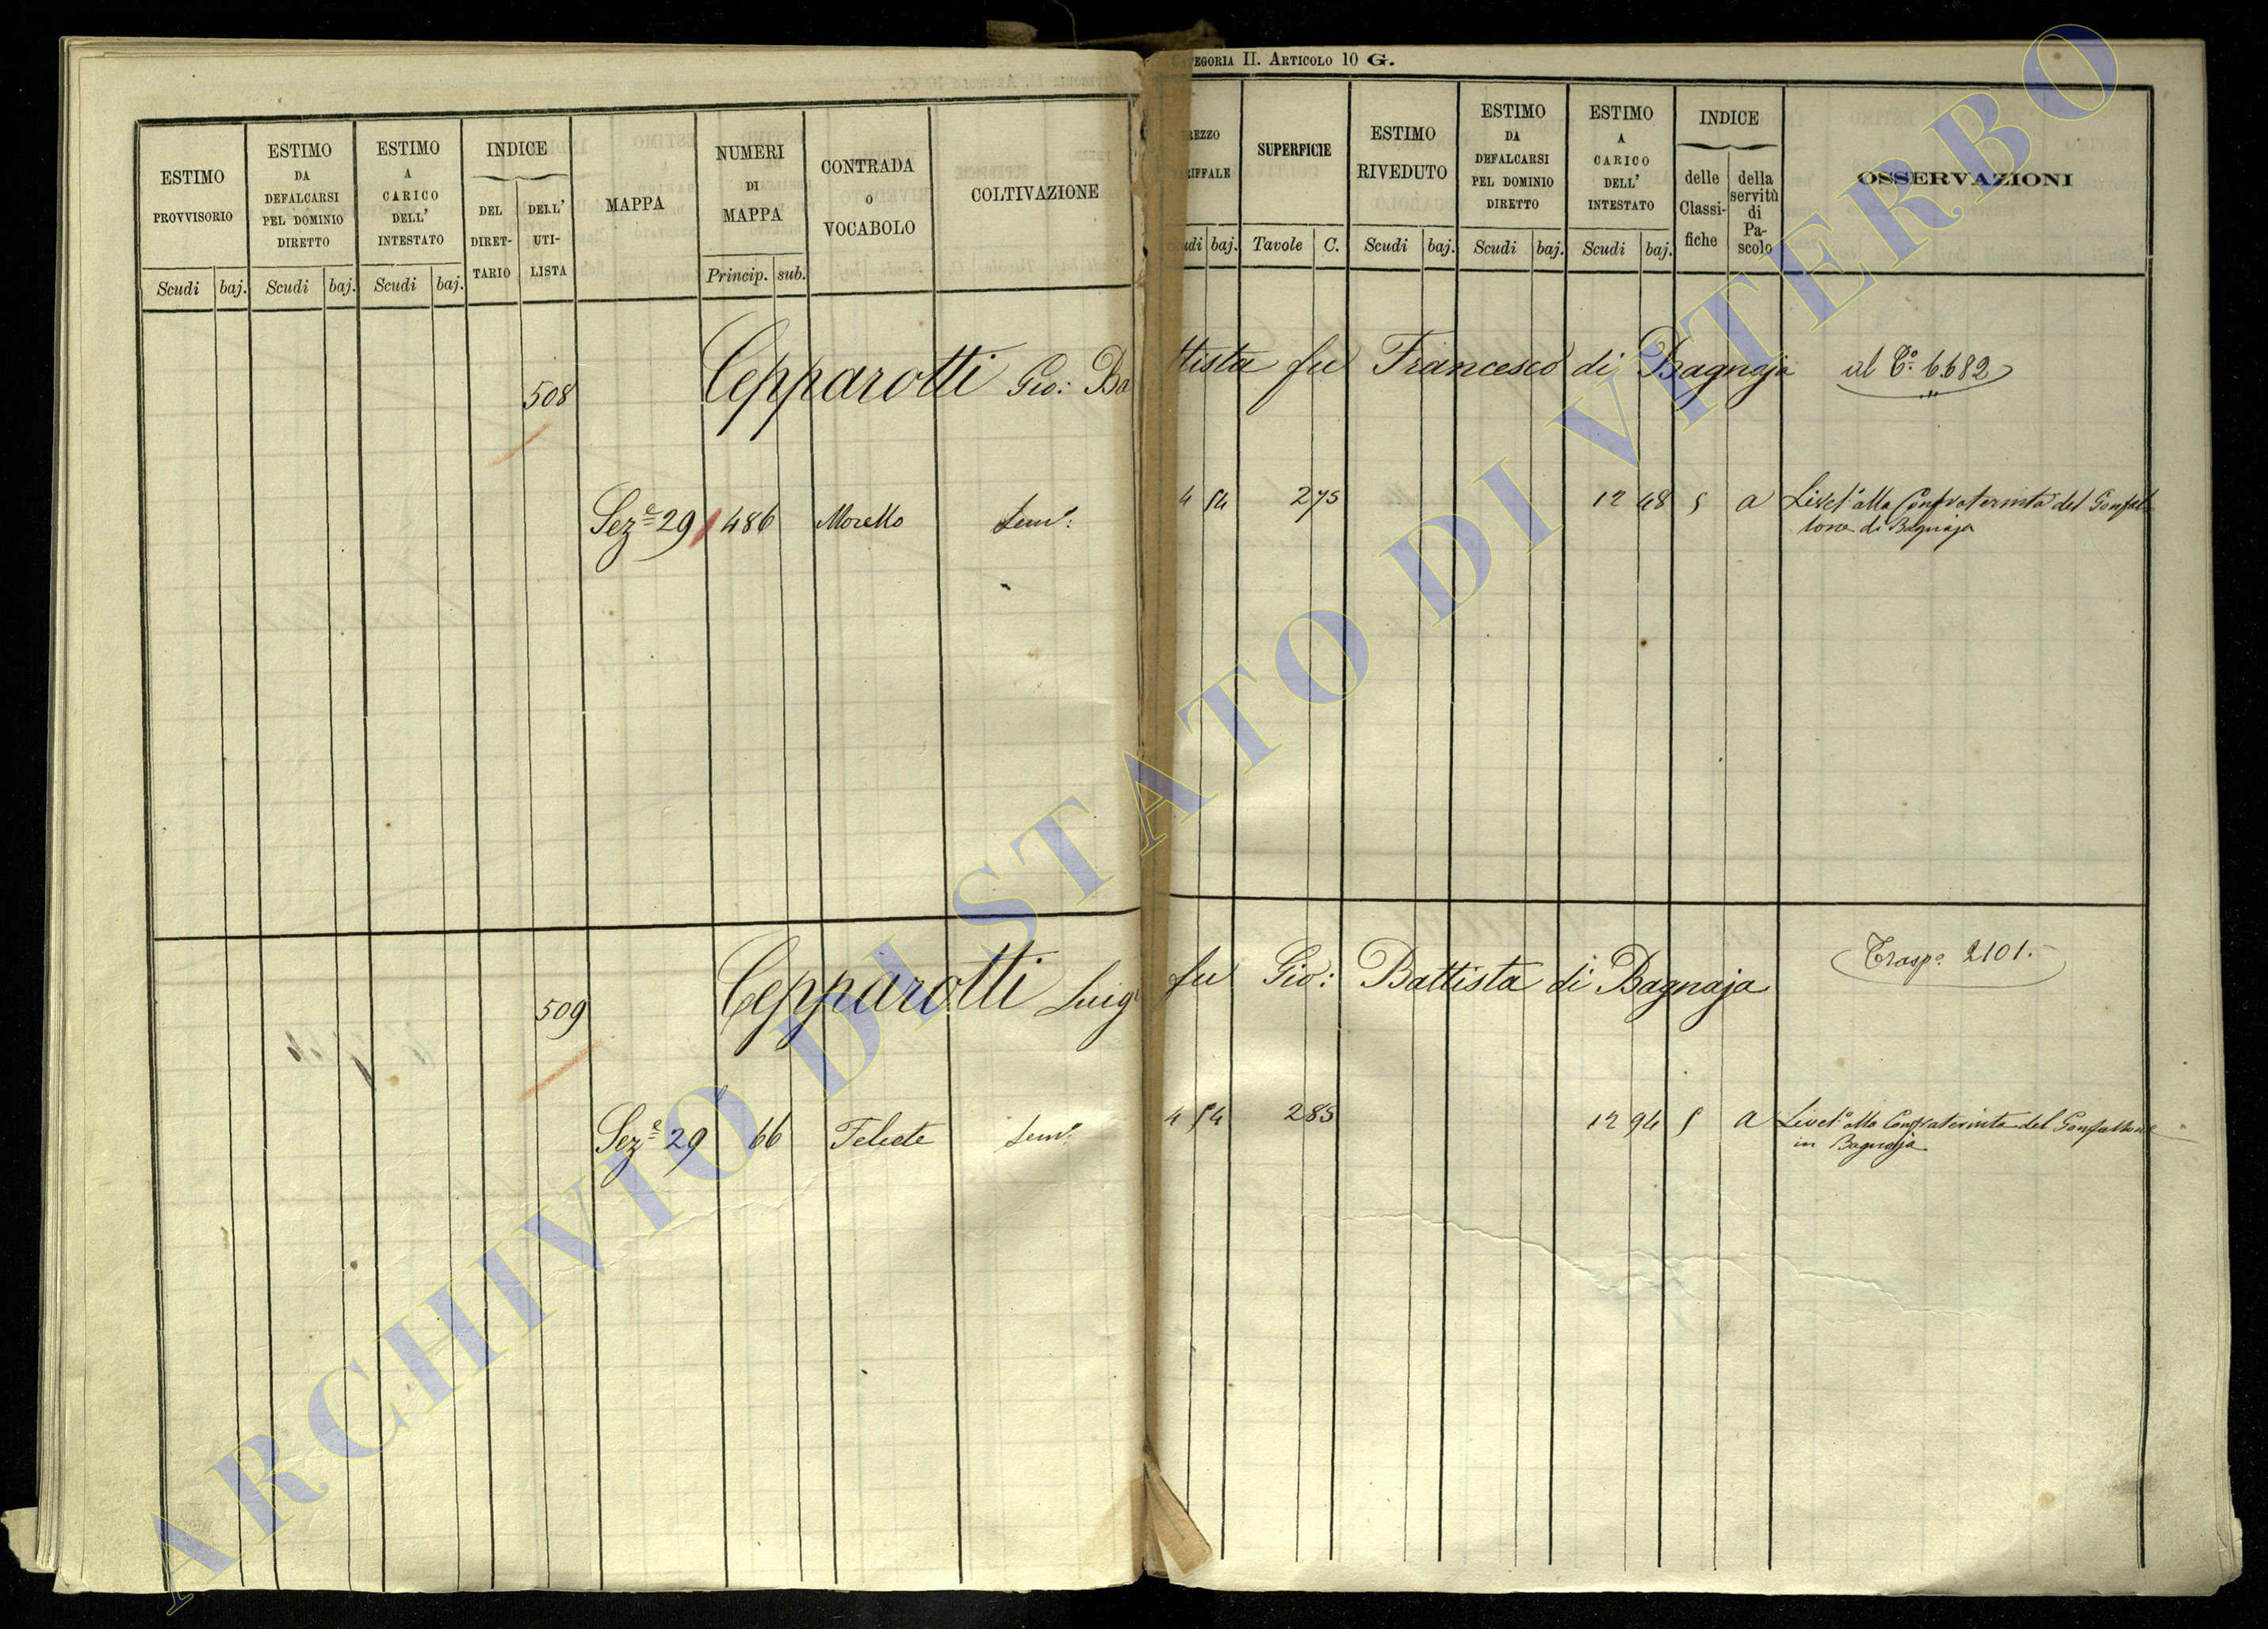 CATEGORIA II. ARTICOLO 10 G.
ESTIMO PROVVISORIO
Scudi baj.
ESTIMO DA DEFALCARSI PEL DOMINIO DIRETTO
Scudi baj.
ESTIMO A CARICO DELL' INTESTATO
Scudi baj.
INDICE
DEL DIRET-TARIO
DELL' UTI-LISTA
MAPPA
NUMERI DI MAPPA
Princip. sub.
CONTRADA o VOCABOLO
COLTIVAZIONE
REZZO
RIFFALE
udi baj.
SUPERFICIE
Tavole C.
ESTIMO RIVEDUTO
Scudi baj.
ESTIMO DA DEFALCARSI PEL DOMINIO DIRETTO
Scudi baj.
ESTIMO A CARICO DELL' INTESTATO
Scudi baj.
INDICE
delle Classi-fiche
della servitù di Pa-scolo
OSSERVAZIONI
508 Cepparotti Gio: Battista fu Francesco di Bagnaja al C.º 6682
Sez.e 29 486 Morello Sem.º 4 54 2 75 12 48 5 a Livel.º alla Confraternita del Gonfal
lone di Bagnaja
509 Cepparotti Luigi fu Gio: Battista di Bagnaja Trasp.º 2101.
Sez.e 29 66 Felcete Sem.º 4 54 2 85 12 94 5 a Livel.º alla Confraternita del Gonfallone
in Bagnaja
ARCHIVIO DI STATO DI VITERBO